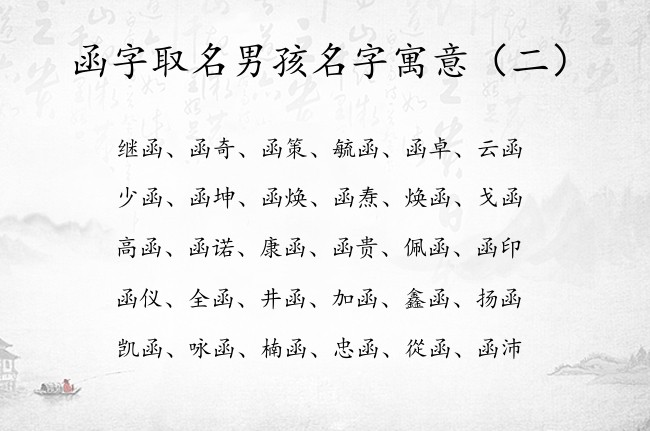 函字取名男孩名字寓意（二）
继函、函奇、函策、毓函、函卓、云函
少函、函坤、函焕、函焘、焕函、戈函
高函、函诺、康函、函贵、佩函、函印
函仪、全函、井函、加函、鑫函、扬函
凯函、咏函、楠函、忠函、從函、函沛